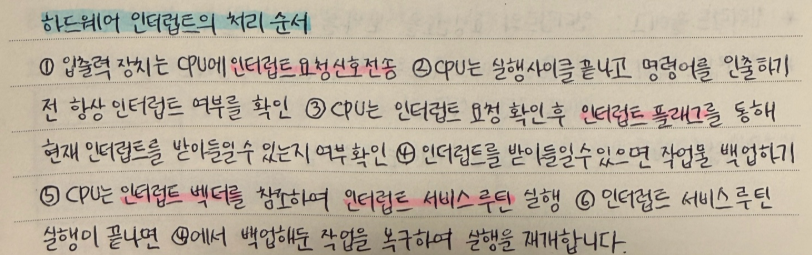 하드웨어 인터럽트의 처리 순서
① 입출력 장치는 CPU에 인터럽트 요청신호전송 ②CPU는 실행사이클 끝나고 명령어를 인출하기
전 항상 인터럽트 여부를 확인 ③CPU는 인터럽트 요청 확인 후 인터럽트 플래그를 통해
현재 인터럽트를 받아들일수 있는지 여부확인 ④ 인터럽트를 받아들일수있으면 작업물 백업하기
⑤ CPU는 인터럽트 벡터를 참조하여 인터럽트 서비스 루틴 실행 ⑥ 인터럽트 서비스루틴
실행이 끝나면 ④에서 백업해둔 작업을 복구하여 실행을 재개합니다.